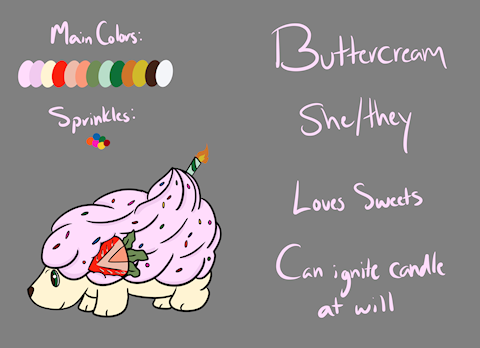 Main Colors:
Sprinkles:
Buttercream
She/they
Loves Sweets
Can ignite candle
at will